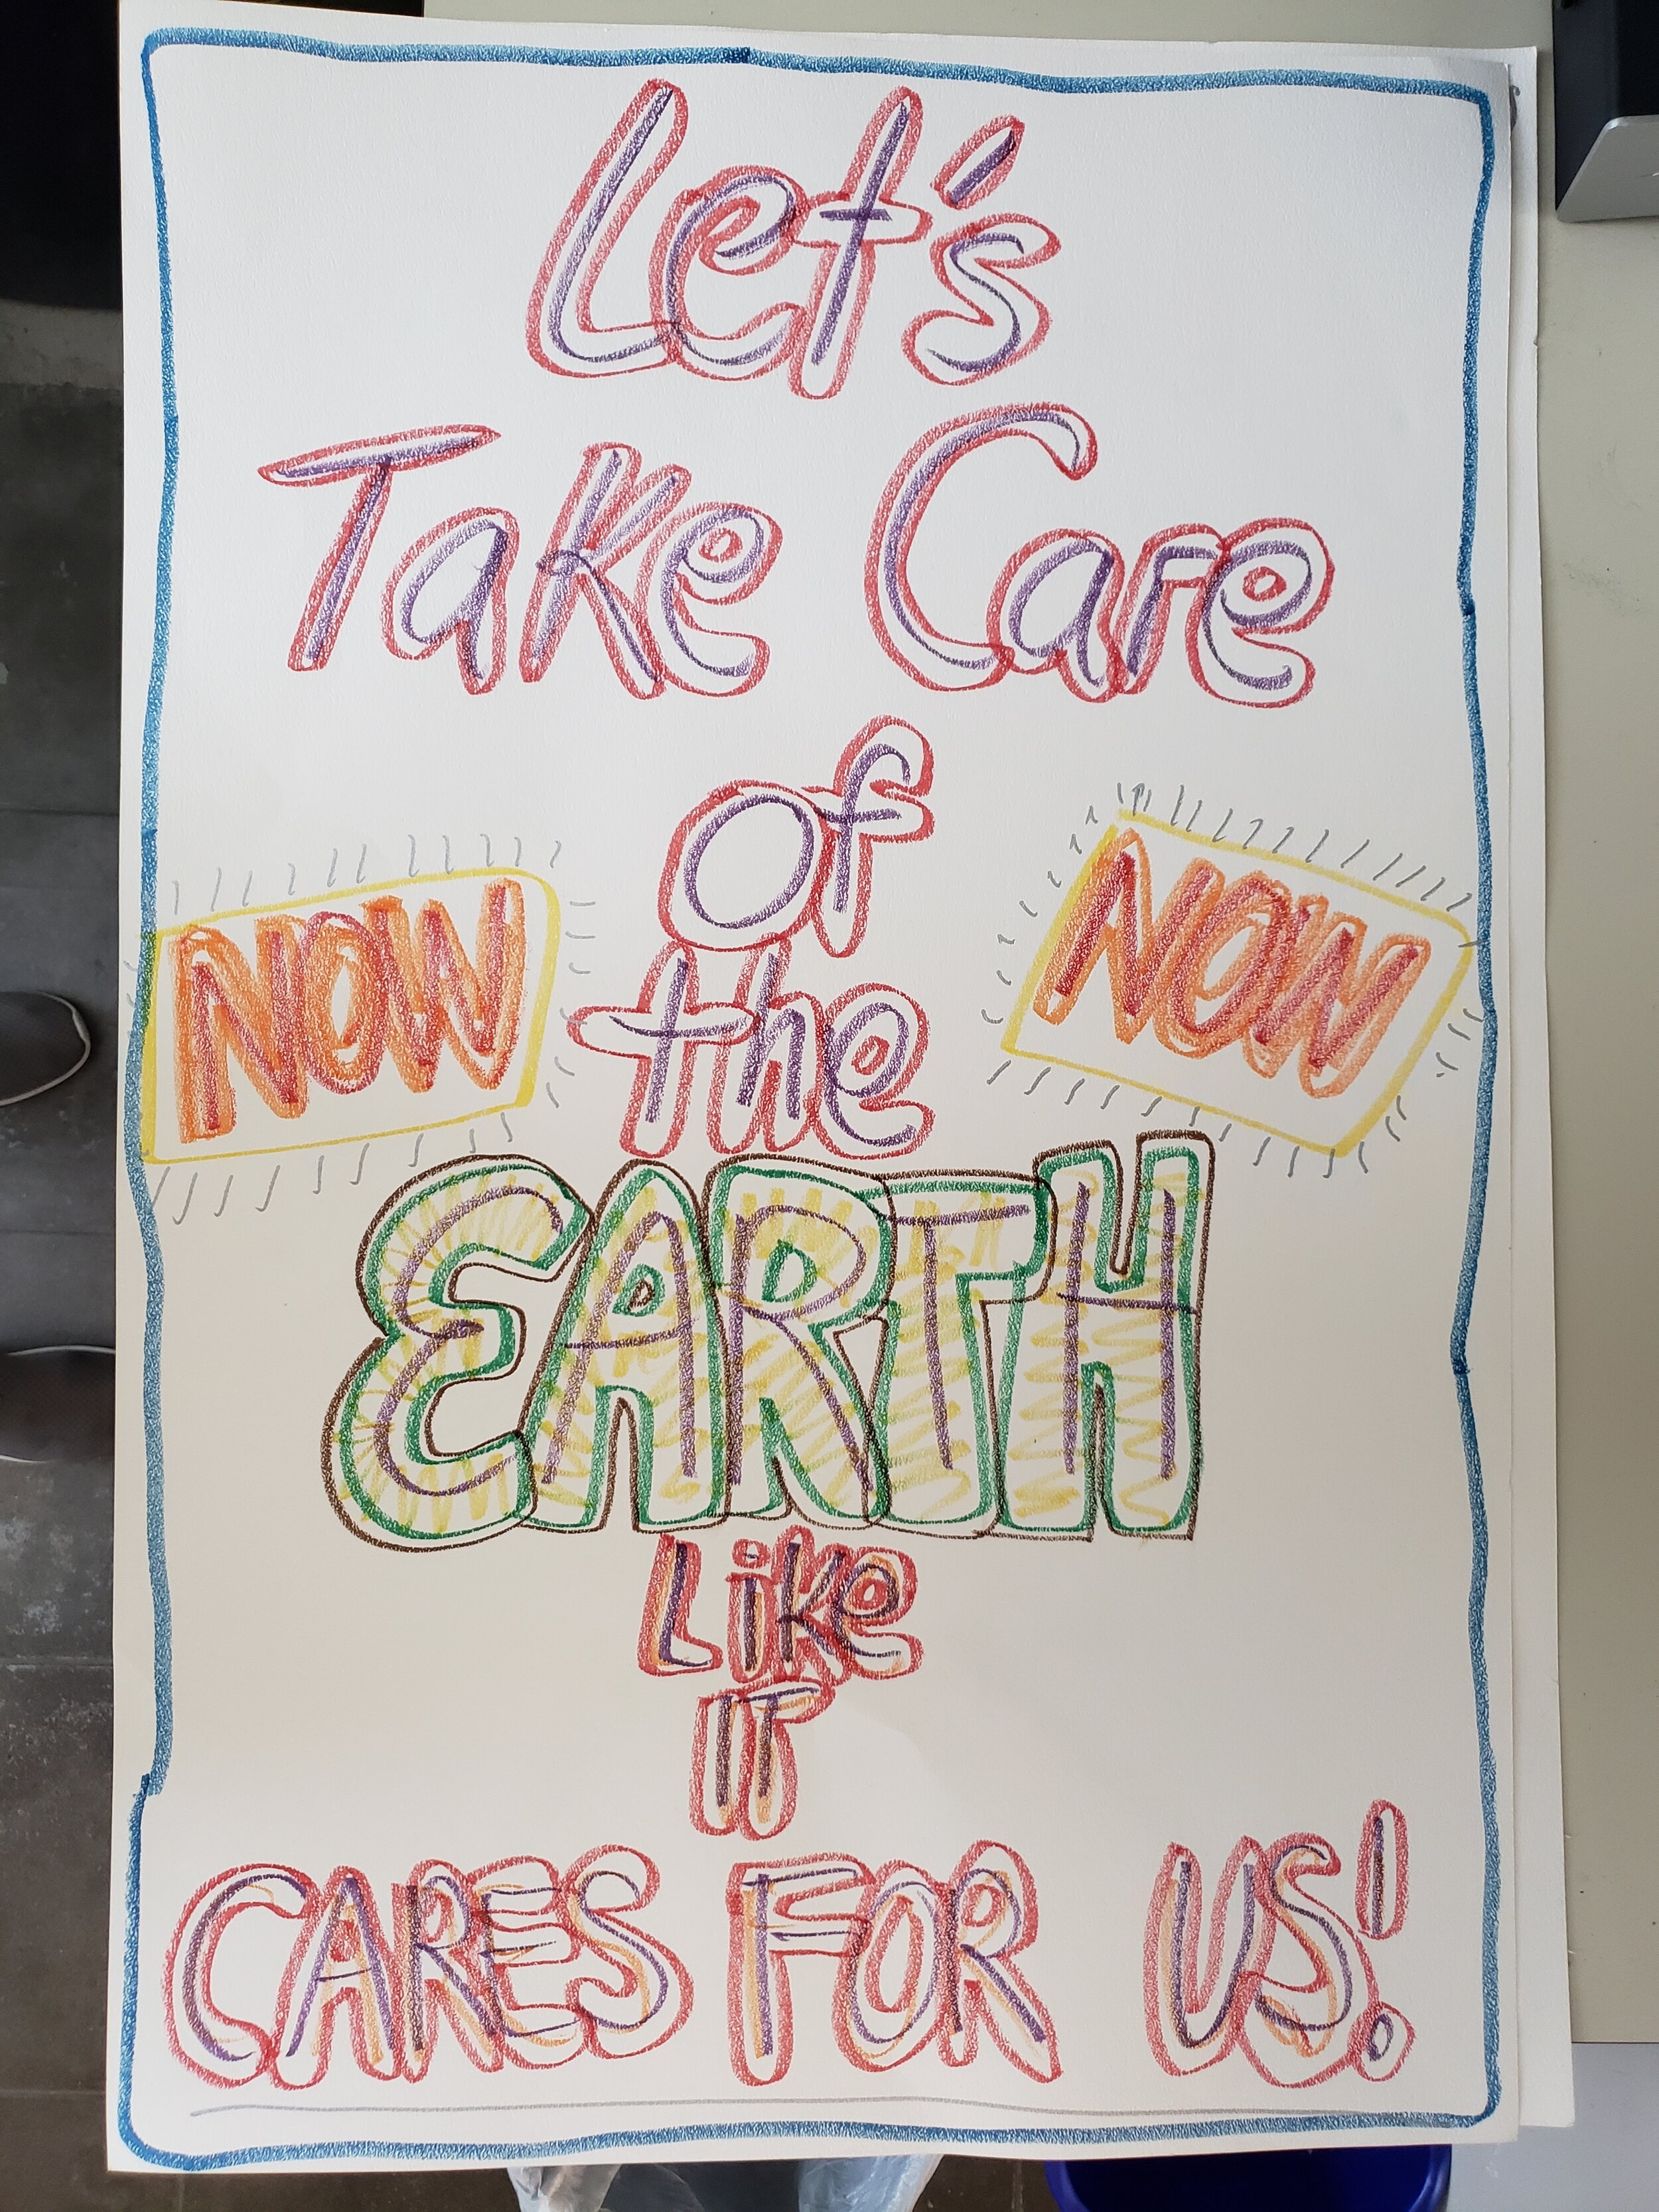 Let's
Take Care
of
NOW
the
NOW
EARTH
Like
IT
CARES FOR US!